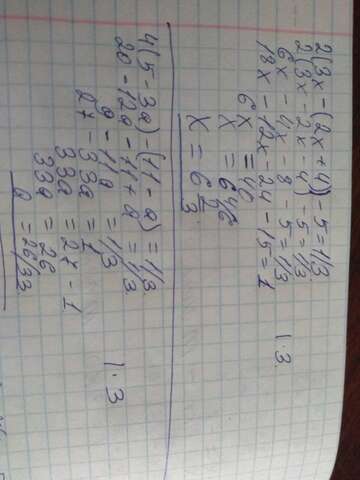 2(3x - (2x + 4)) - 5 = 1/3
2(3x - 2x - 4) - 5 = 1/3
6x - 4x - 8 - 5 = 1/3 | · 3
18x - 12x - 24 - 15 = 1
6x = 40
x = 6 4/6
x = 6 2/3.
4(5 - 3a) - (11 - a) = 1/3
20 - 12a - 11 + a = 1/3
9 - 11a = 1/3 | · 3
27 - 33a = 1
33a = 27 - 1
33a = 26
a = 26/33.